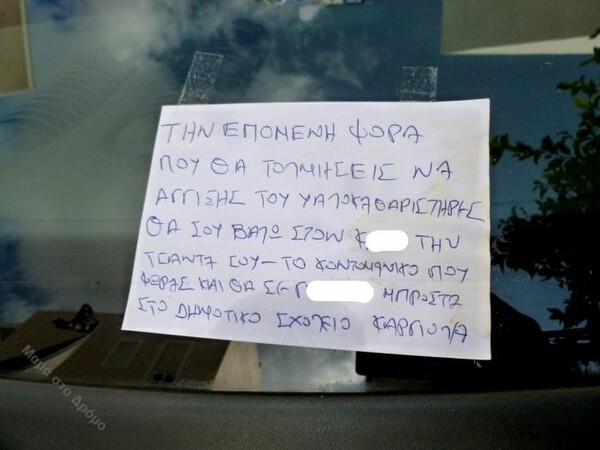 ΤΗΝ ΕΠΟΜΕΝΗ ΦΟΡΑ
ΠΟΥ ΘΑ ΤΟΛΜΗΣΕΙΣ ΝΑ
ΑΓΓΙΞΗΣ ΤΟΥ ΥΑΛΟΚΑΘΑΡΙΣΤΗΡΕΣ
ΘΑ ΣΟΥ ΒΑΛΩ ΣΤΟΝ Κ ΤΗΝ
ΤΣΑΝΤΑ ΣΟΥ – ΤΟ ΚΟΝΤΟΜΑΝΙΚΟ ΠΟΥ
ΦΟΡΑΣ ΚΑΙ ΘΑ ΣΕ Γ ΜΠΡΟΣΤΑ
ΣΤΟ ΔΗΜΟΤΙΚΟ ΣΧΟΛΕΙΟ ΚΑΡΠΟΛΑ
Μαμά στο Δρόμο